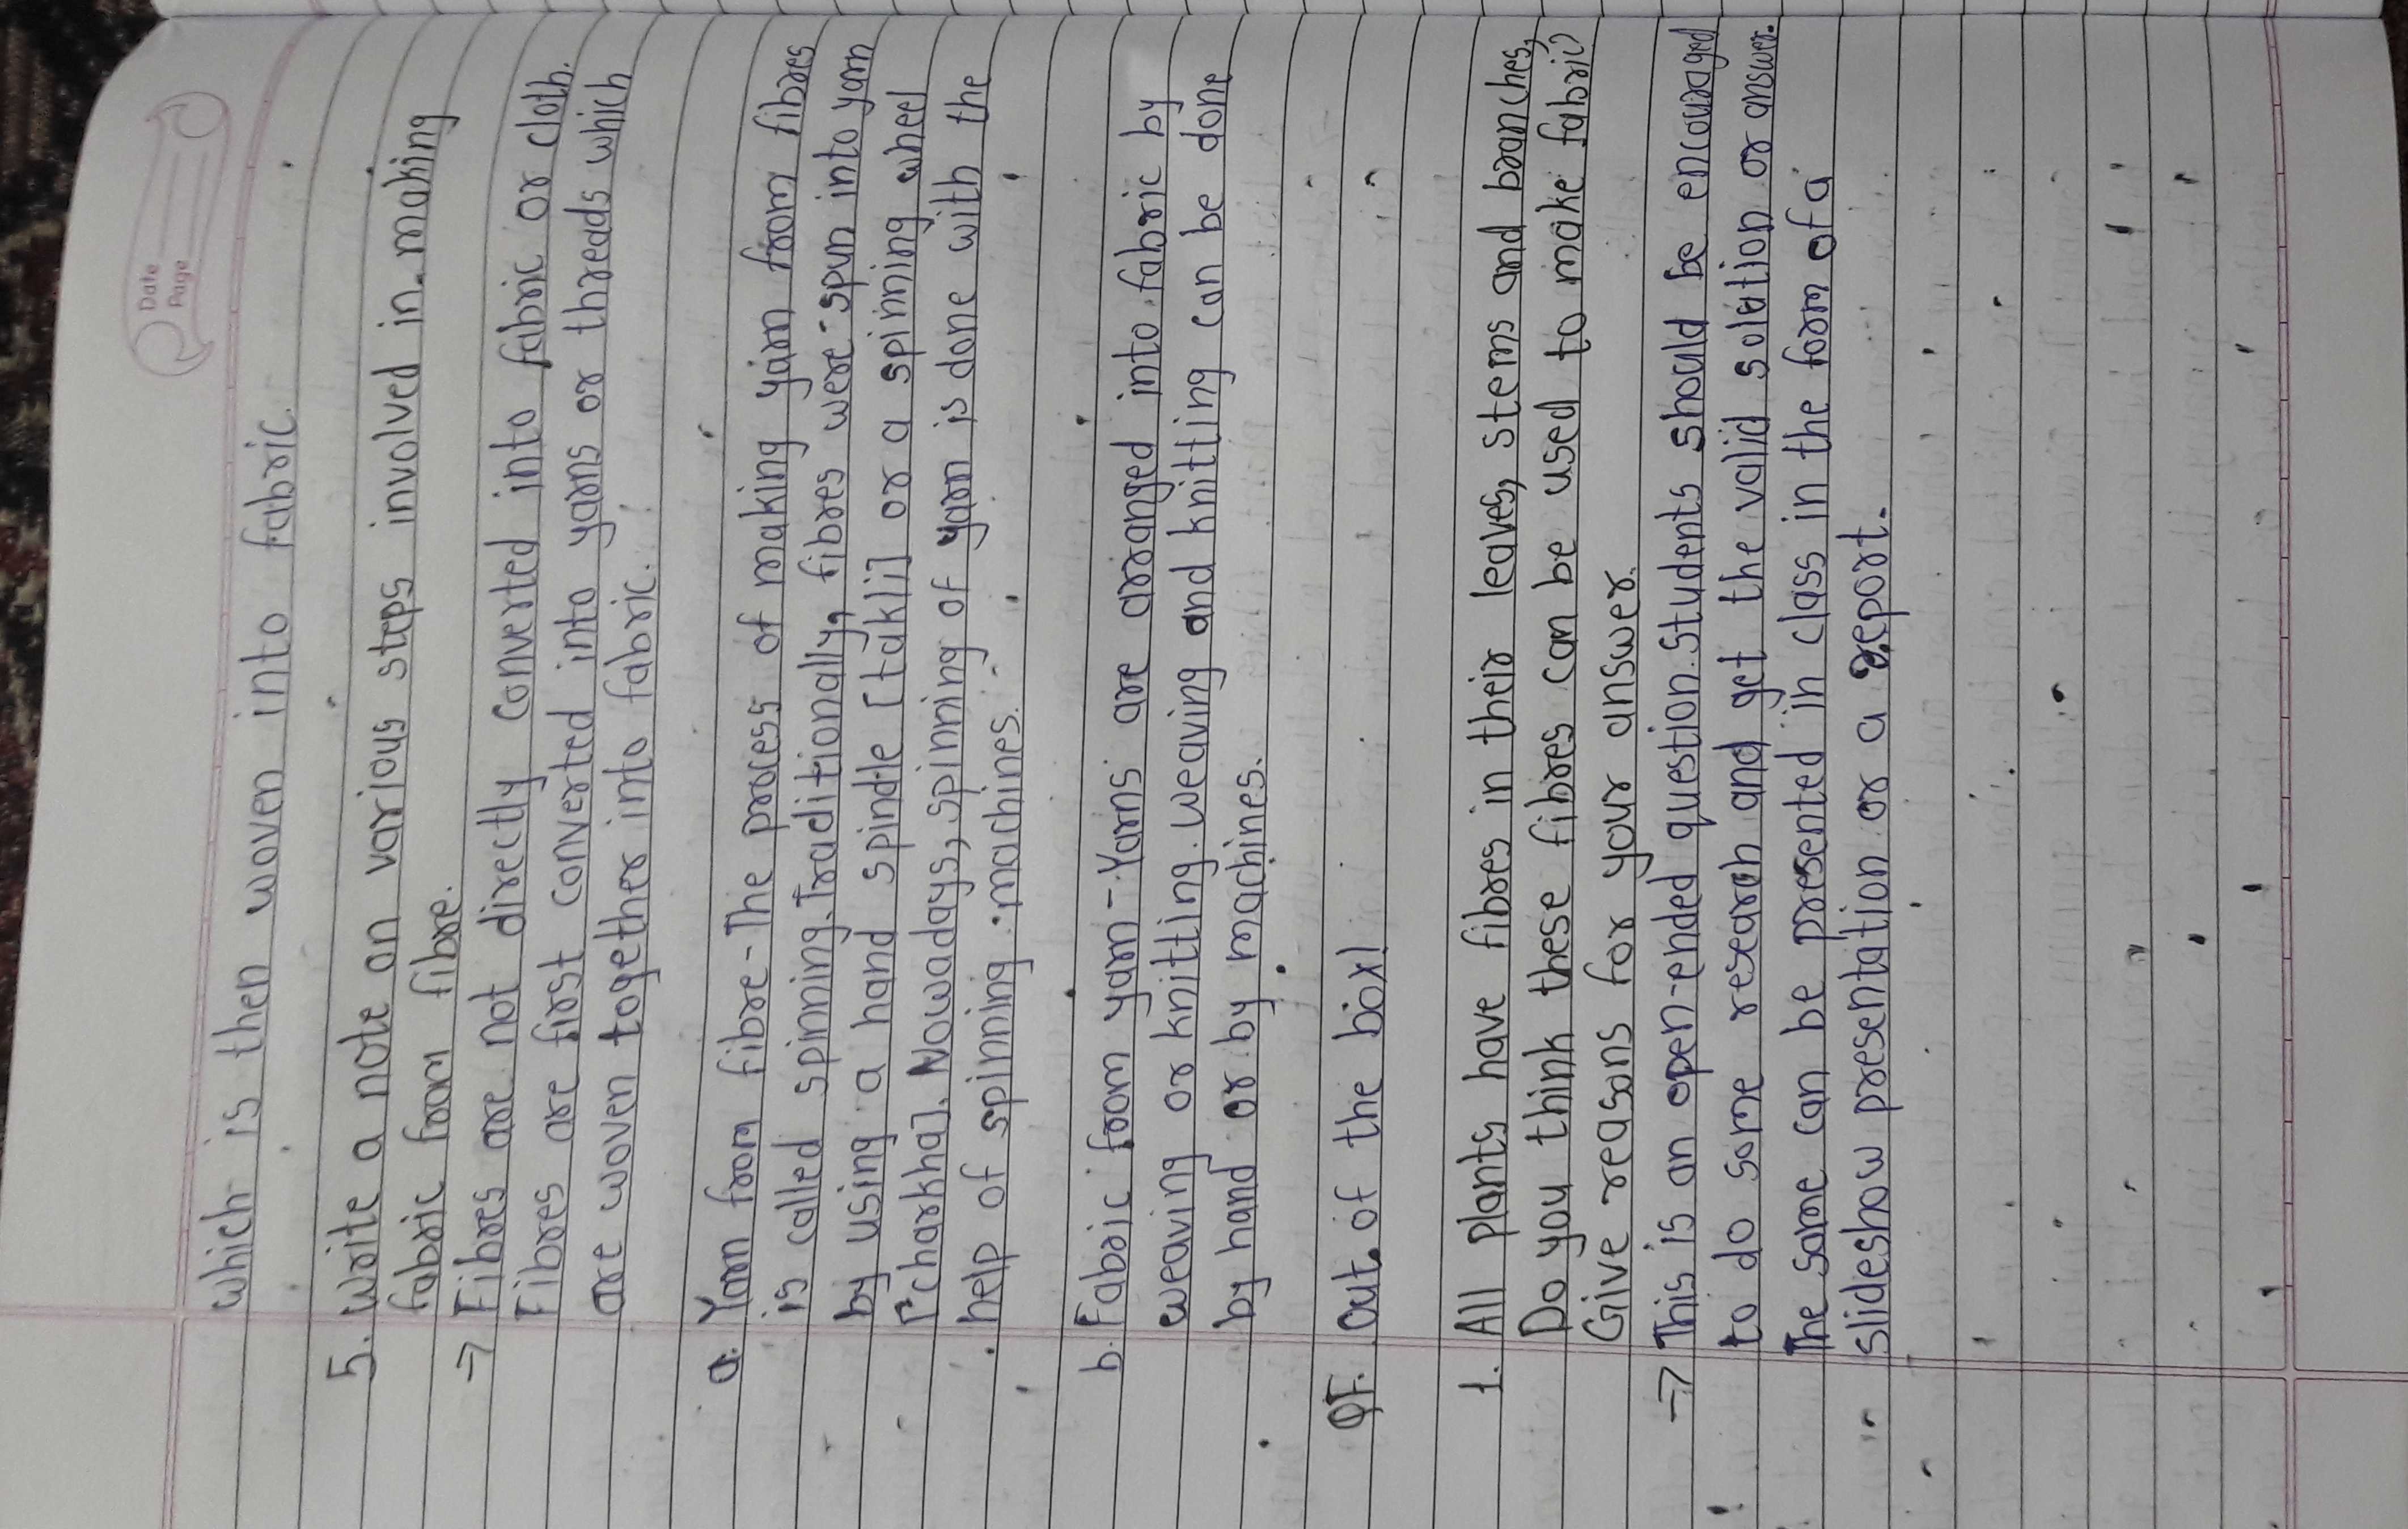 Date
Page
which is then woven into fabric.
5. Write a note on various steps involved in making
fabric from fibre.
→ Fibres are not directly converted into fabric or cloth.
Fibres are first converted into yarns or threads which
are woven together into fabric.
a. Yarn from fibre - The process of making yarn from fibres
is called spinning. Traditionally, fibres were spun into yarn
by using a hand spindle [takli] or a spinning wheel
[charkha]. Nowadays, spinning of yarn is done with the
help of spinning machines.
b. Fabric from yarn - Yarns are arranged into fabric by
weaving or knitting. weaving and knitting can be done
by hand or by machines.
QF. Out of the box!
1. All plants have fibres in their leaves, stems and branches,
Do you think these fibres can be used to make fabric?
Give reasons for your answer.
→ This is an open-ended question. Students should be encouraged
to do some research and get the valid solution or answer.
The same can be presented in class in the form of a
slideshow presentation or a report.